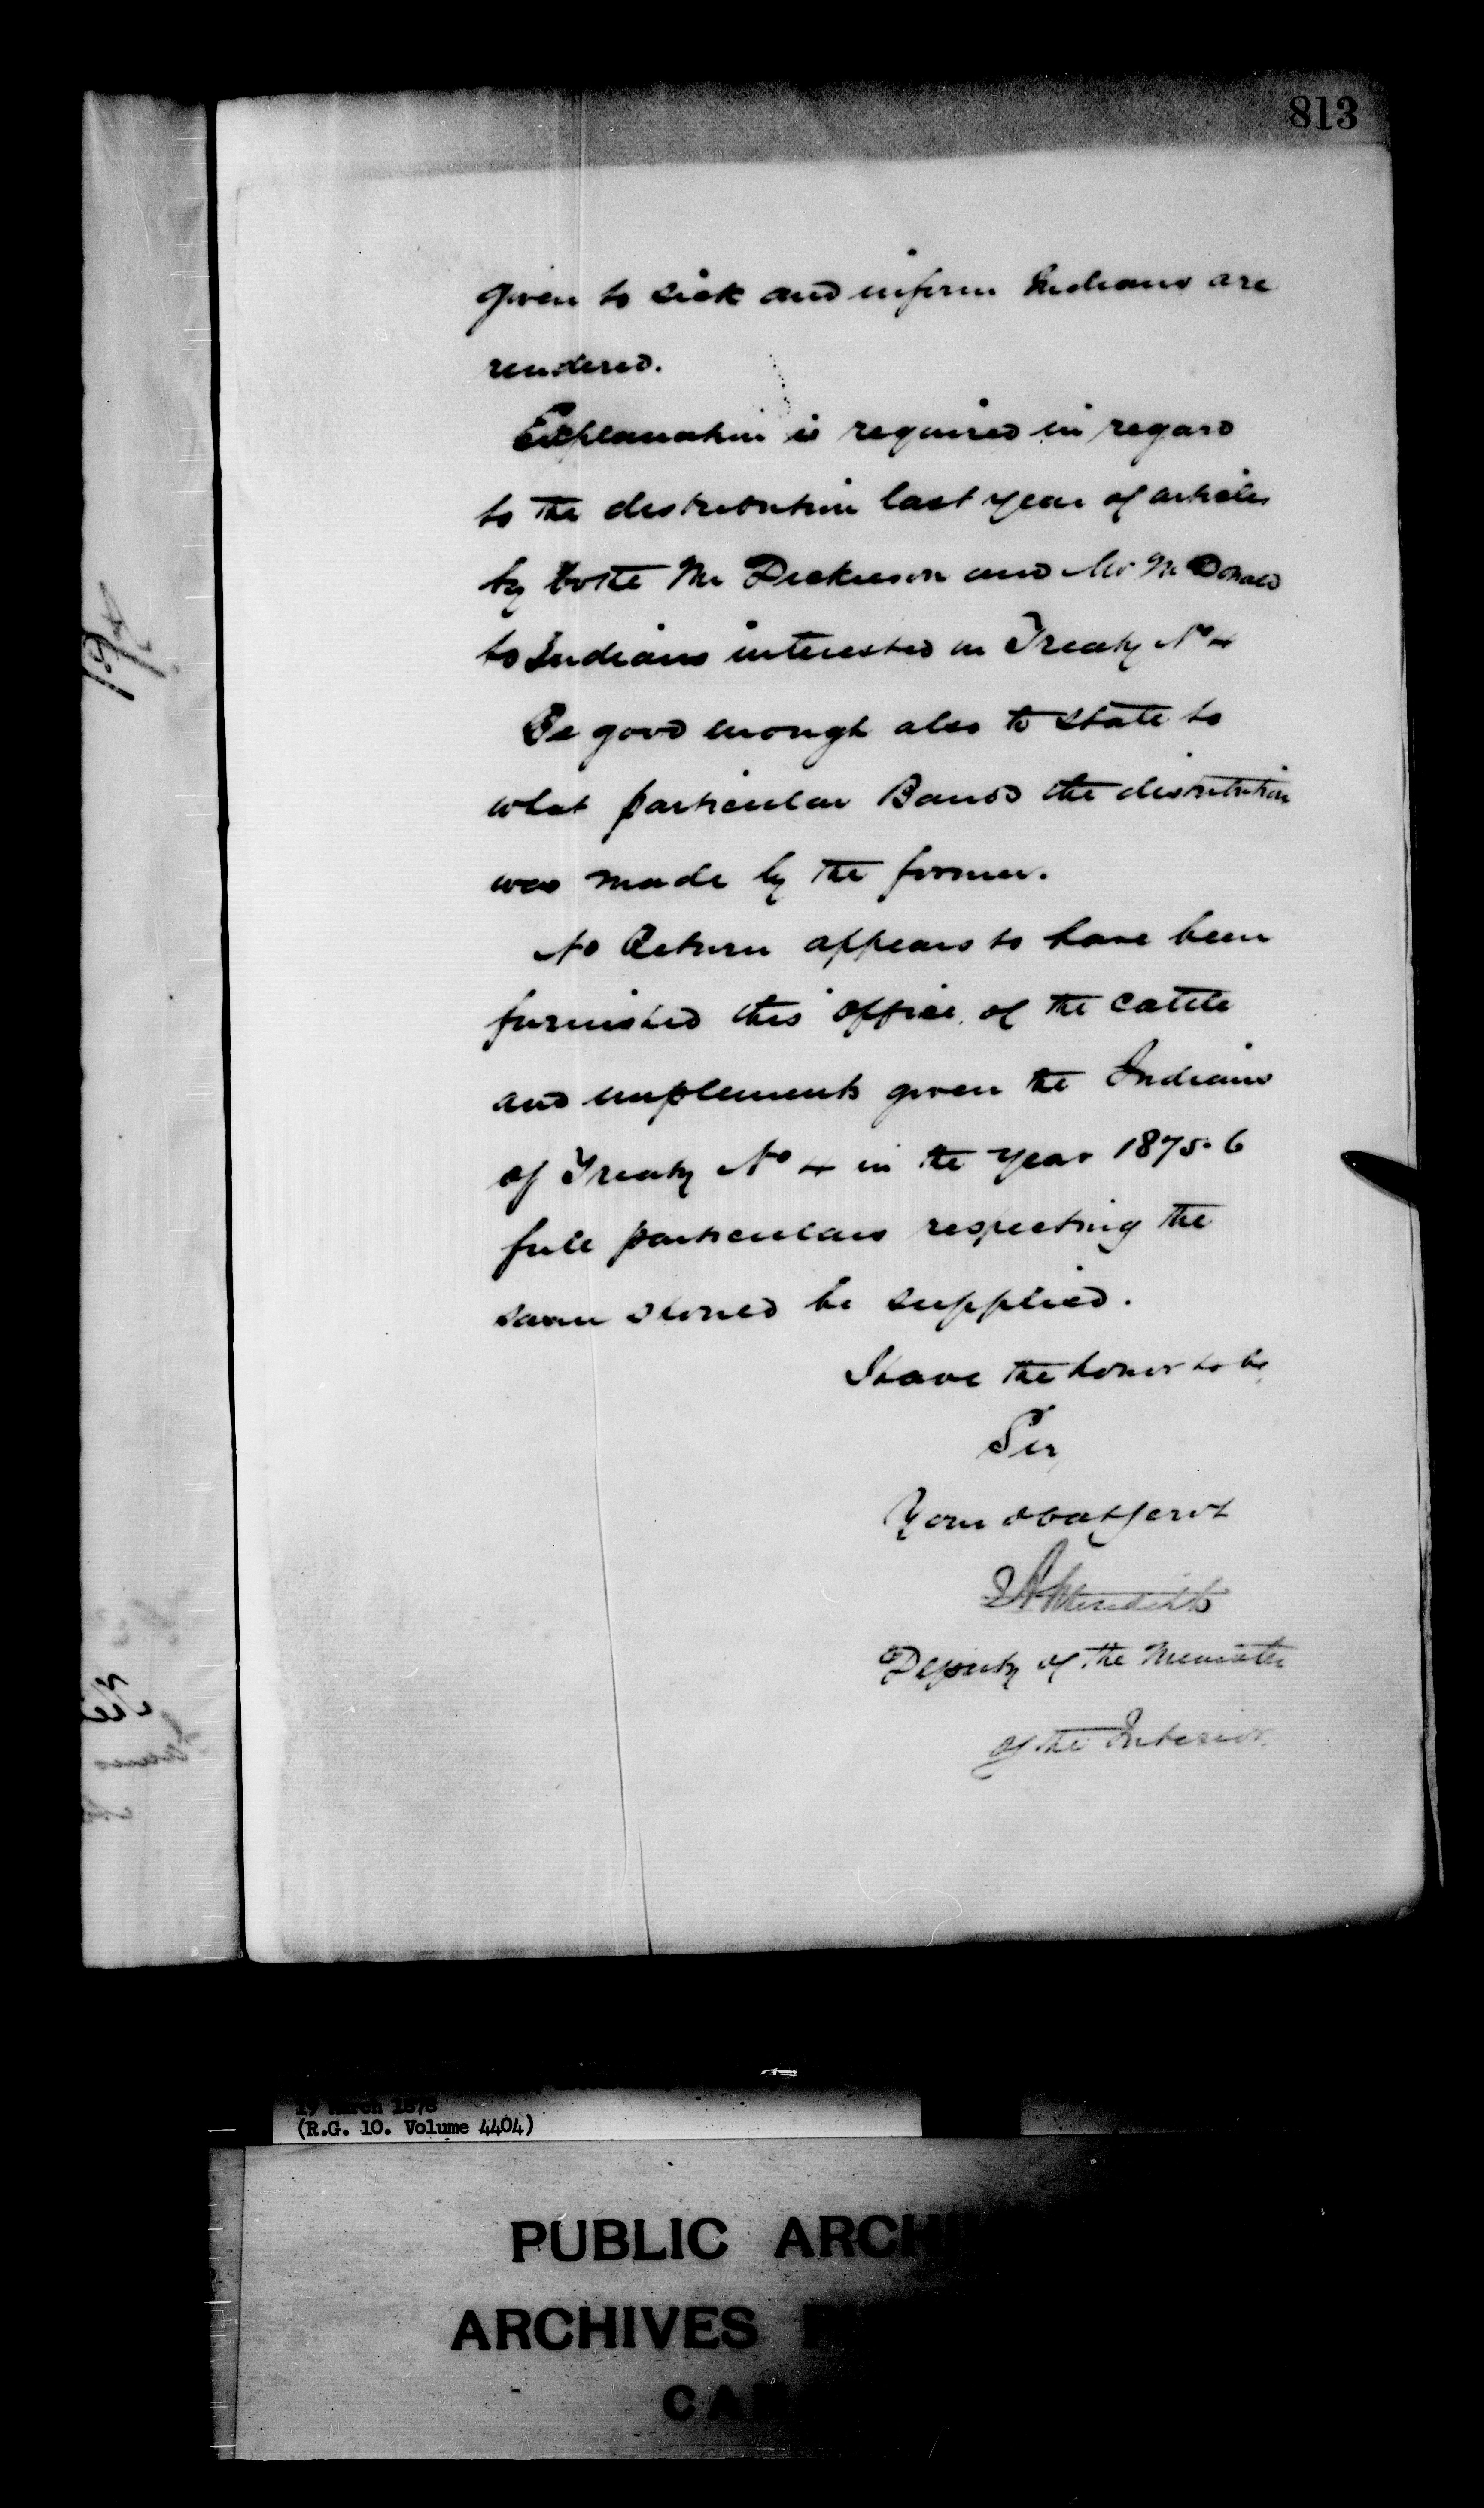 813
given to sick and infirm Indians are
rendered.
Explanation is required in regard
to the distribution last year of articles
by both Mr Dickieson and Mr McDonald
to Indians interested in Treaty No 4
Be good enough also to state to
what particular Bands the distribution
was made by the former.
No Return appears to have been
furnished this office of the cattle
and implements given the Indians
of Treaty No 4 in the year 1875-6
full particulars respecting the
same should be supplied.
I have the honor to be
Sir
Your obedt servt
Meredith
Deputy of the Minister
of the Interior.
19 March 1878
(R.G. 10. Volume 4404)
PUBLIC ARCH
ARCHIVES
CA